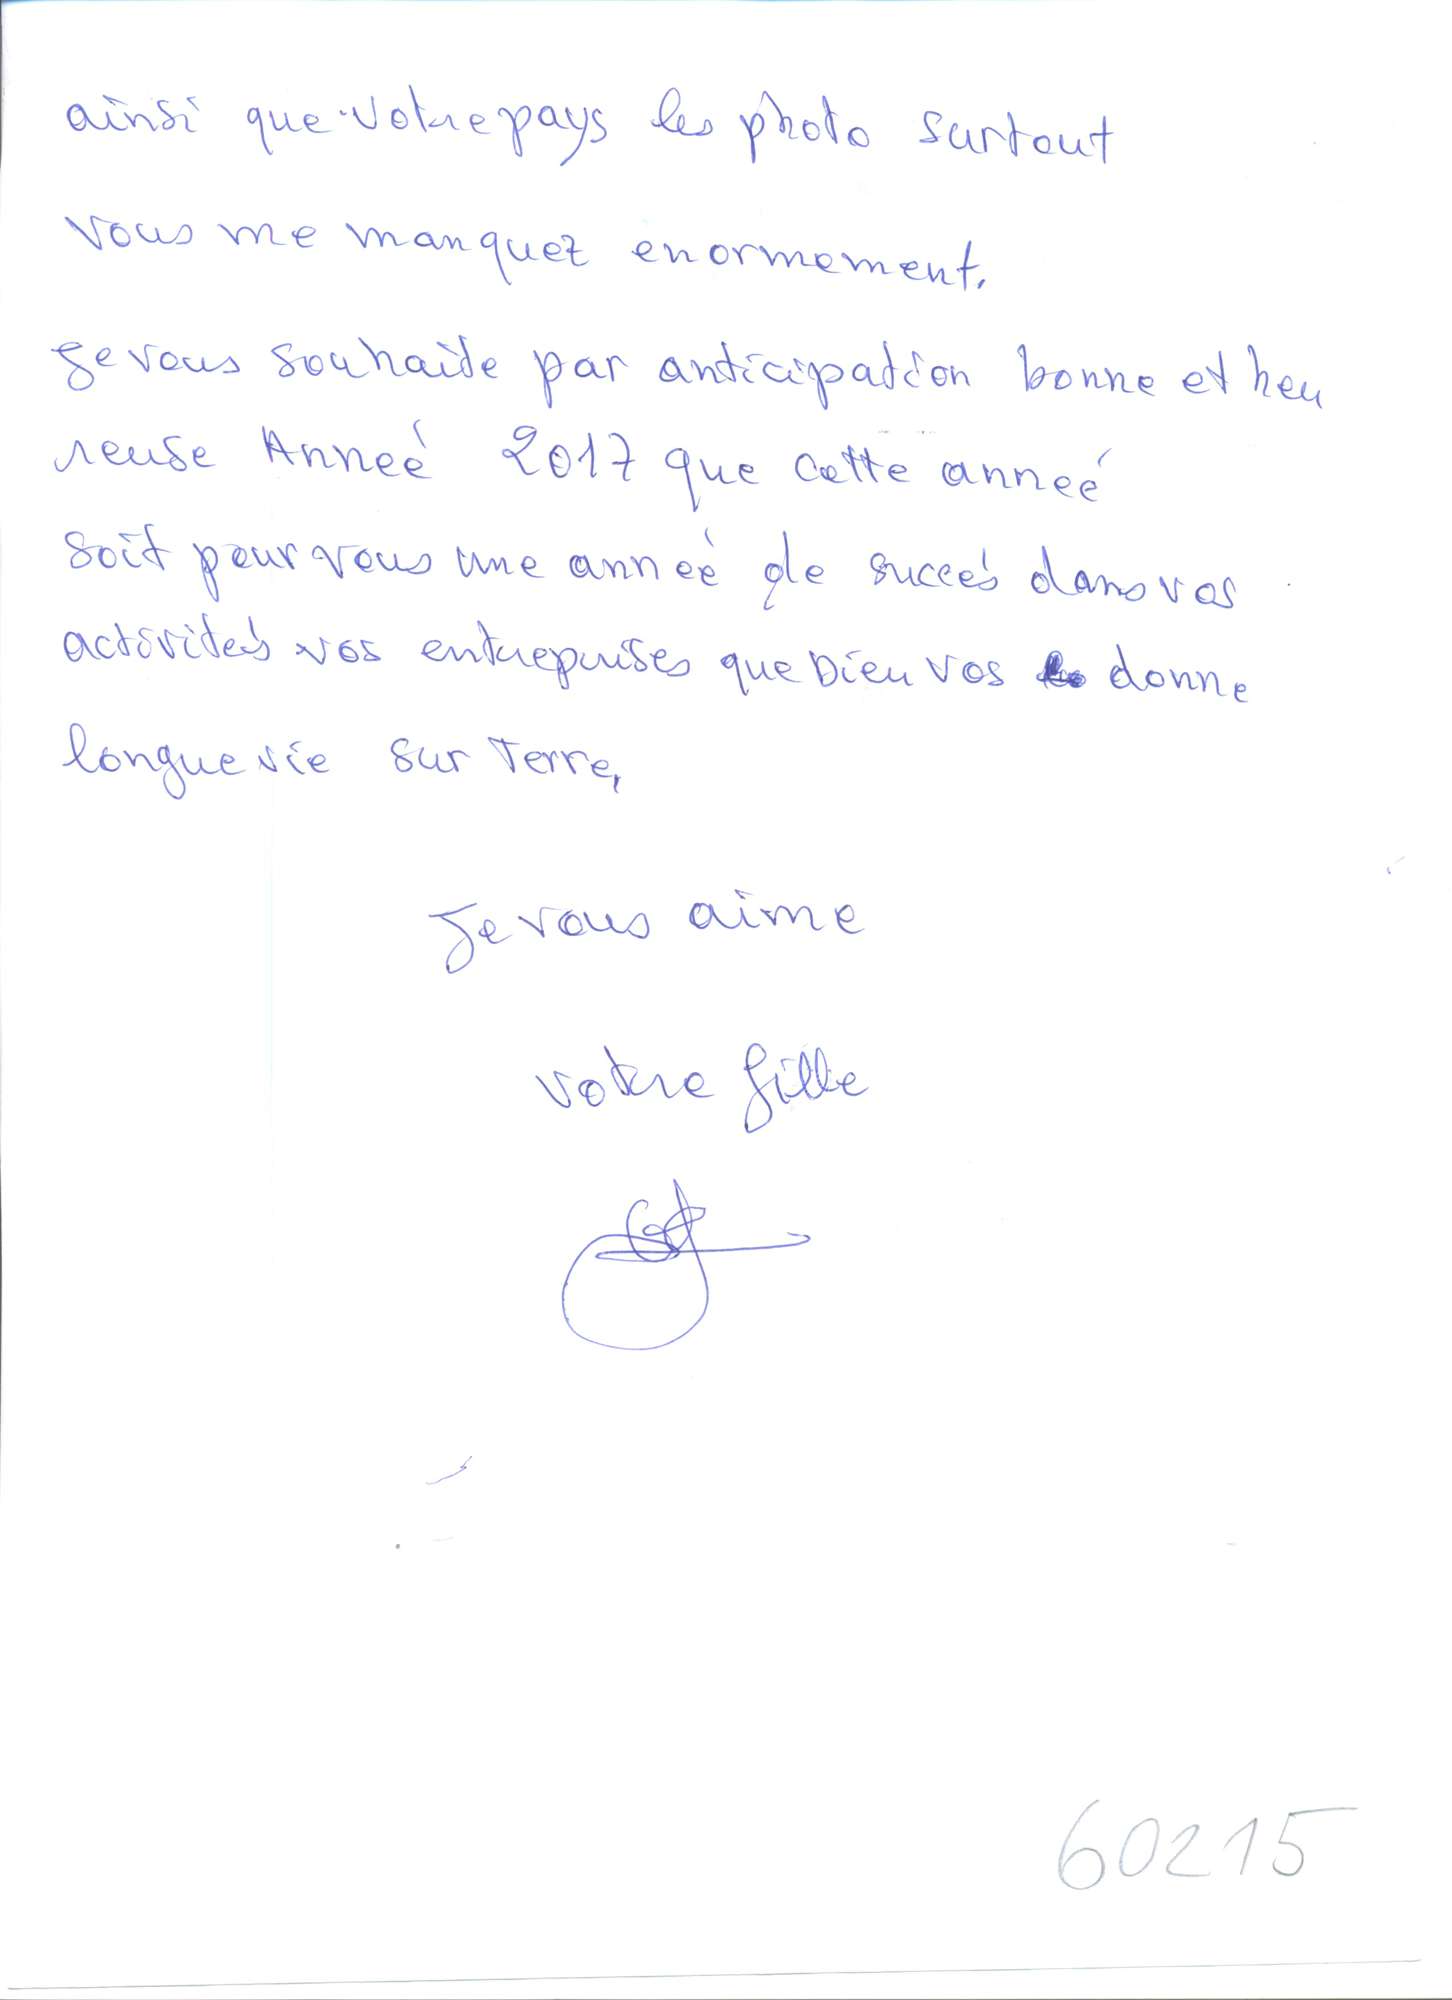 ainsi que votre pays les photo surtout
vous me manquez enormement.
Je vous souhaite par anticipation bonne et heu
reuse Anneé 2017 que cette anneé
soit pour vous une anneé de succés dans vos
activités vos entreprises que Dieu vos donne
longue vie sur Terre,
Je vous aime
votre fille
60215